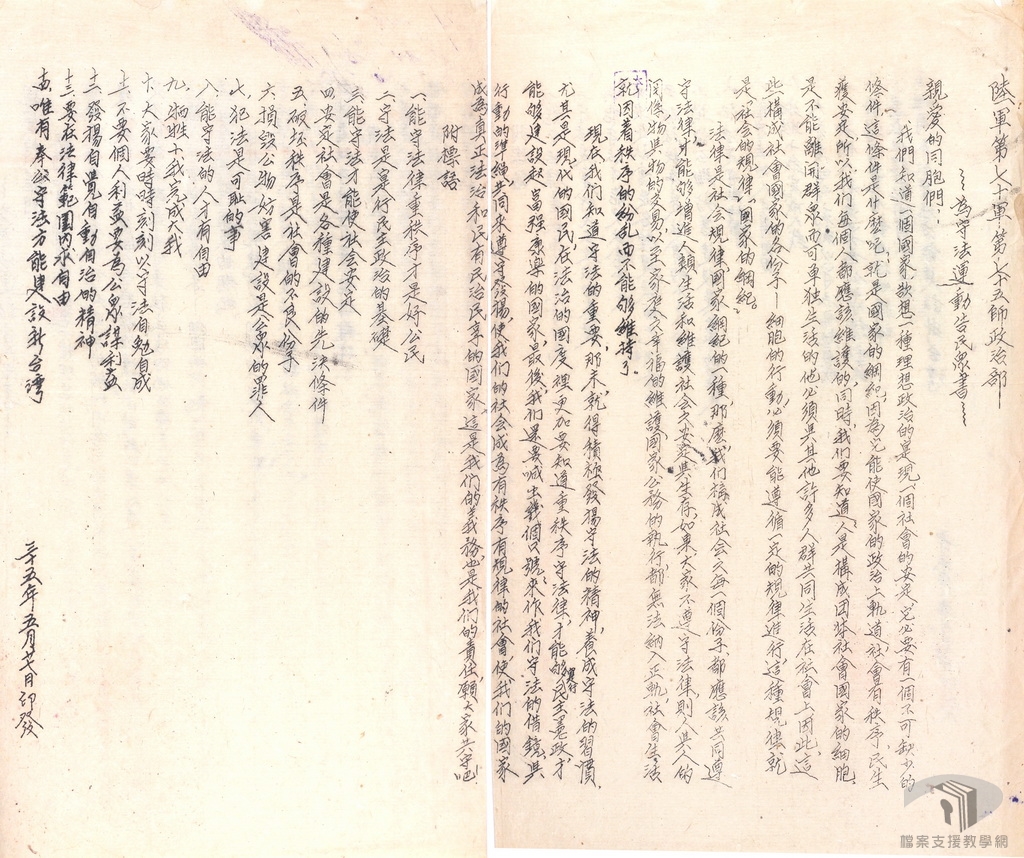 陸軍第七十軍第七十五師政治部
為守法運動告民眾書
親愛的同胞們：
我們知道一個國家欲想一種理想政治的實現，一個社會的安定，它必要有一個不可缺少的
條件，這條件是什麼呢，就是國家的綱紀，因為它能使國家的政治上軌道，社會有秩序，民生
獲安定，所以我們每個人都應該維護的，同時，我們要知道，人是構成团体社會國家的細胞，
是不能離開群眾而可單独生活的，他必須與其他許多人群共同生活在社會上，因此，這
些構成社會國家的各份子—細胞的行動，必須要能遵循一定的規律進行，這種規律就
是「社會的規律」「國家的綱紀」。
法律是社會規律國家綱紀的一種，那麼，我們構成社會之每一個份子，都應該共同遵
守法律，才能夠增進人類生活和維護社會之安定與生存，如果大家不遵守法律，則人與人的
関係，物與物的交易，以至家庭之幸福的維護，國家公務的執行，都無法納入正軌，社會生活
就因着秩序的紛乱而不能夠維持了。
現在我們知道守法的重要，那末，就得積極發揚守法的精神，養成守法的習慣，
尤其是現代的國民，在法治的國度裡，更加要知道重秩序守法律，才能夠實行民主憲政，才
能夠建設起富强康樂的國家，最後，我們還要喊出幾個口號，來作我們守法的借鏡與
行動的準繩，共同來遵守發揚，使我們的社會成為有秩序有規律的社會，使我們的國家
成為真正法治和民有民治民享的國家，這是我們的義務，也是我們的責任，願大家共守吧
附標語
一、能守法律重秩序才是好公民
二、守法是實行民主政治的基礎
三、能守法才能使社會安定
四、安定社會是各種建設的先決條件
五、破坏秩序是社會的不良份子
六、損毀公物妨害建設是公眾的罪人
七、犯法是可恥的事
八、能守法的人才有自由
九、牺牲小我完成大我
十、大家要時時刻刻以守法自勉自成
十一、不要個人利益要為公眾謀利益
十二、發揚自覺自動自治的精神
十三、要在法律範圍內求自由
十四、唯有奉公守法方能建設新台灣
三十五年五月廿七日印發
檔案支援教學網